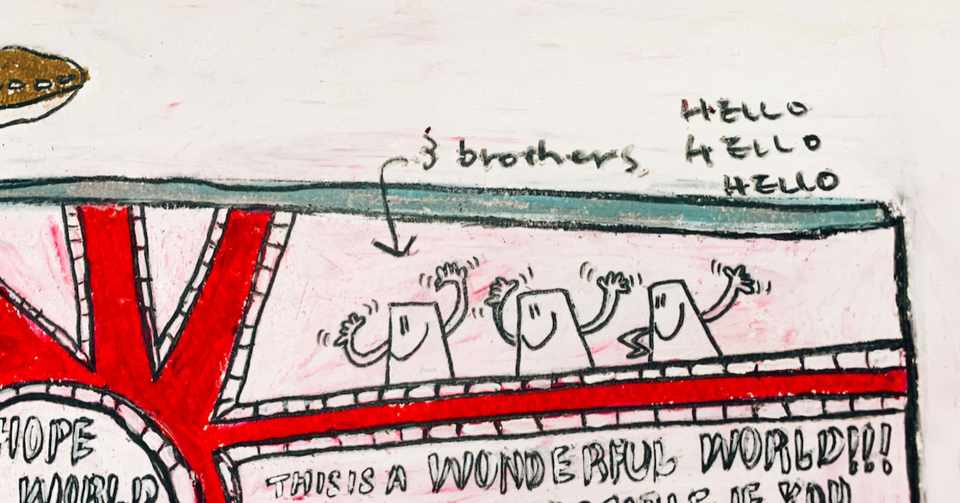 HELLO
3 brothers
HELLO
HELLO
HOPE
WORLD
THIS IS A WONDERFUL WORLD!!!
IF YOU